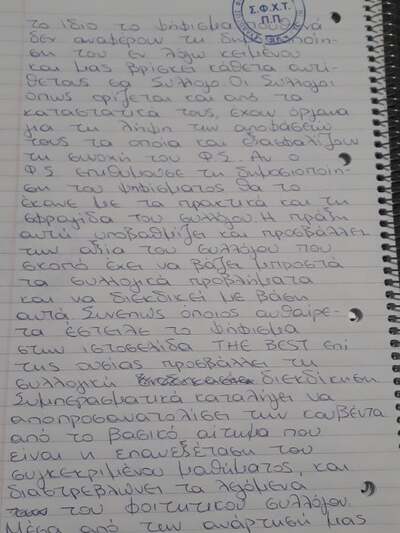 Σ.Φ.Χ.Τ.
Π.Π.
το ίδιο το ψήφισμα πουθενά
δεν αναφέρουν τη δημοσιοποίη-
ση του εν λόγω κειμένου
και μας βρίσκει κάθετα αντί-
θετους ως Σύλλογο. Οι Σύλλογοι
όπως ορίζεται και από τα
καταστατικά τους, έχουν όργανα
για τη λήψη των αποφάσεων
τους τα οποία και εξασφαλίζουν
τη συνοχή του Φ.Σ. Αν ο
Φ.Σ επιθυμούσε τη δημοσιοποίη-
ση του ψηφίσματος θα το
έκανε με τα πρακτικά και τη
σφραγίδα του συλλόγου. Η πράξη
αυτή υποβαθμίζει και προσβάλλει
την αξία του συλλόγου που
σκοπό έχει να βάζει μπροστά
τα συλλογικά προβλήματα
και να διεκδικεί με βάση
αυτά. Συνεπώς όποιος αυθαίρε-
τα έστειλε το ψήφισμα
στην ιστοσελίδα THE BEST επί
της ουσίας προσβάλλει τη
συλλογική διεκδίκηση
Συμπερασματικά καταλήγει να
αποπροσανατολίσει την κουβέντα
από το βασικό αίτημα που
είναι η επανεξέταση του
συγκεκριμένου μαθήματος, και
διαστρεβλώνει τα λεγόμενα
του φοιτητικού συλλόγου.
Μέσα από την ανάρτησή μας